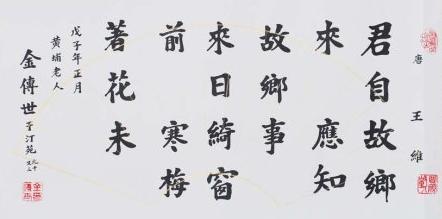 唐 王維
君自故鄉
來 應知
故鄉事
來日綺窗
前 寒梅
著花未
戊子年正月
黃埔老人
金傳世 于汀苑